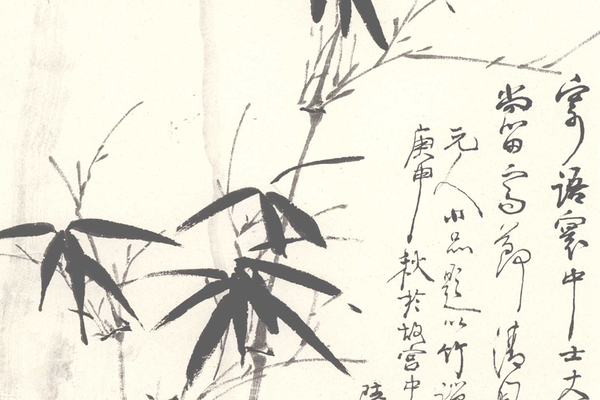 寄語寰中士大
尚留高節清
元人小品題以竹
庚申秋於故宮中
陸